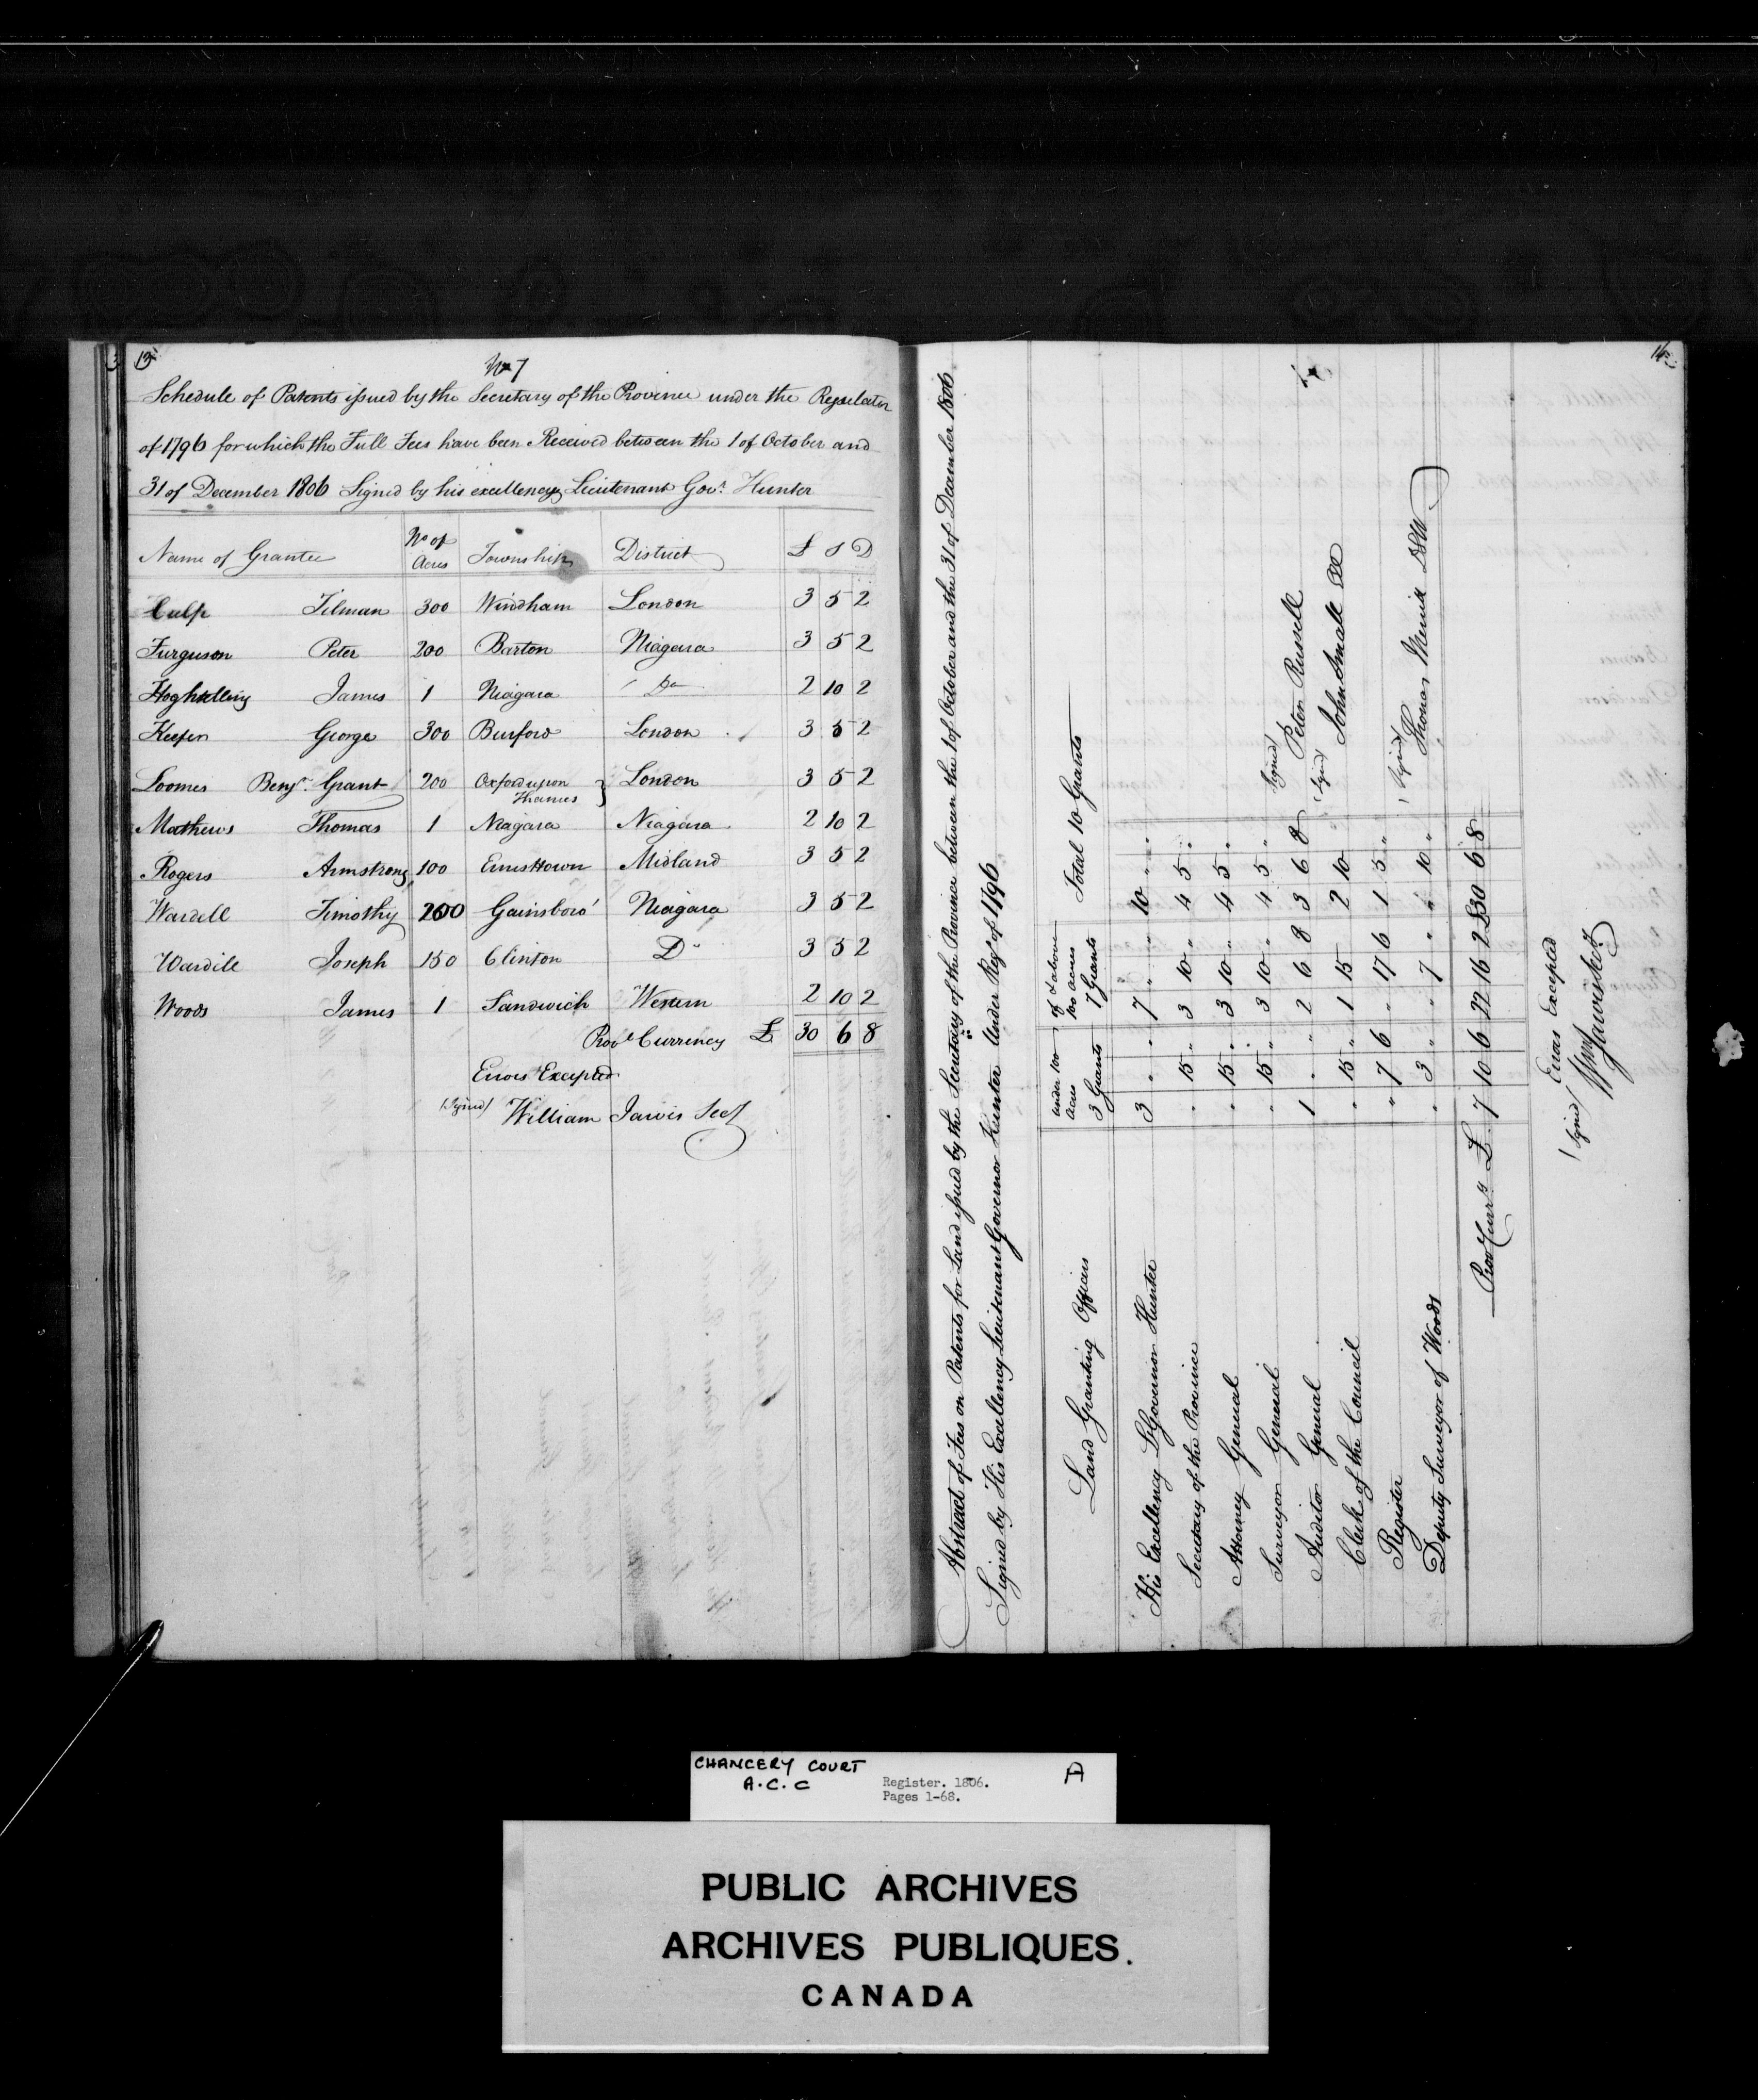 15
No 7
Schedule of Patents issued by the Secretary of the Province under the Regulation
of 1796 for which the Full Fees have been Received between the 1 of October and
31 of December 1806 Signed by his excellency Lieutenant Govr. Hunter
Name of Grantee No of Acres Township District £ S D
Culp Tilman 300 Windham London 3 5 2
Furguson Peter 200 Barton Niagara 3 5 2
James 1 Niagara Do 2 10 2
Keefer George 300 Burford London 3 5 2
Loomes Benjn. Grant 200 Oxford upon Thames } London 3 5 2
Mathews Thomas 1 Niagara Niagara 2 10 2
Rogers Armstrong 100 Ernesttown Midland 3 5 2
Wardell Timothy 200 Gainsboro' Niagara 3 5 2
Wardell Joseph 150 Clinton Do 3 5 2
Woods James 1 Sandwich Western 2 10 2
Provl Currency £ 30 6 8
Errors Excepted
(Signed) William Jarvis Secy
16
Abstract of Fees on Patents for Land issued by the Secretary of the Province between the 1 of October and the 31 of December 1806
Signed by His Excellency Lieutenant Governor Hunter Under Regs of 1796
Land Granting Officers under 100 acres 3 Grants of & above 100 acres 7 Grants Total 10 Grants
His Excellency Lt Governor Hunter 3 " " 7 " " 10 " "
Secretary of the Province " 15 " 3 10 " 4 5 "
Attorney General " 15 " 3 10 " 4 5 "
Surveyor General " 15 " 3 10 " 4 5 "
Auditor General 1 " " 2 6 8 3 6 8 (Signed) Peter Russell
Clerk of the Council " 15 " 1 15 2 10 (Signd) John Small
Register " 7 6 " 17 6 1 5 "
Deputy Surveyor of Woods " 3 " " 7 " " 10 " (Signed) Thomas Merrill DSW
Prov Curry £ 7 10 6 22 16 2 £30 6 8
Errors Excepted
(Signed) Wm Jarvis Secy
CHANCERY COURT
A.C.C
Register. 1806.
Pages 1-68.
A
PUBLIC ARCHIVES
ARCHIVES PUBLIQUES.
CANADA